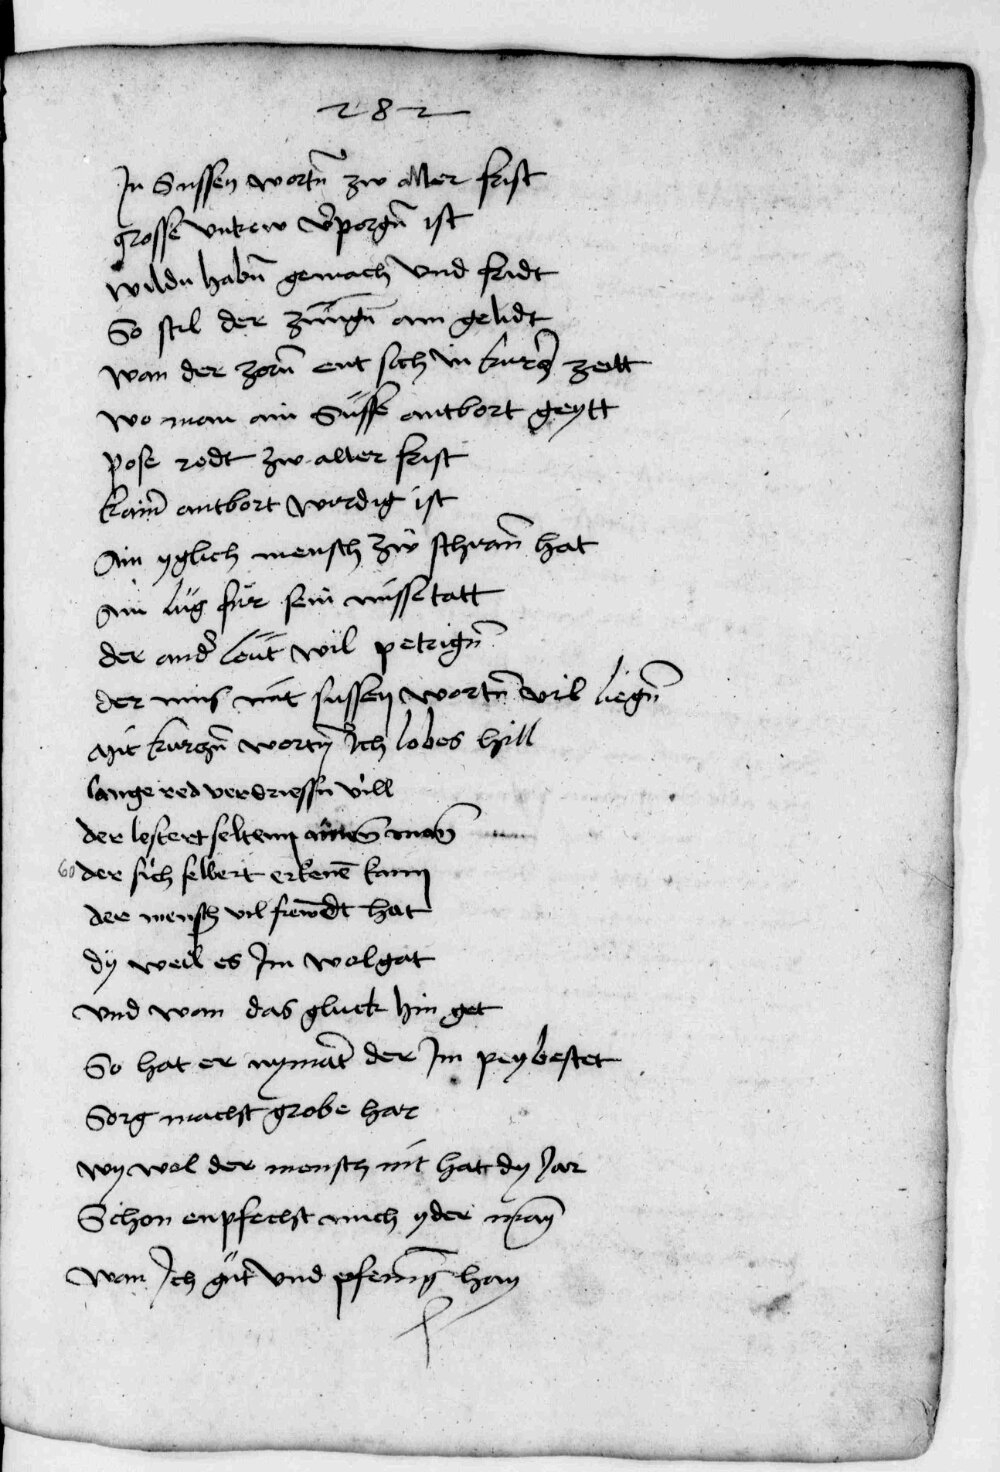 282
In Sussen wortn̄ zw aller frist
grosse vntrew v̄porgn̄ ist
wildu habn̄ gemach vnd fridt
So stil der zungn̄ am gelidt
wan der zorn̄ ent sich in kurcz̄ zeitt
wo man ain Süsse antbort geytt
pose redt zw aller frist
kain̄ antbort wirdig ist
Ain yglich mensch zw schran̄ hat
ain lüg für sein missetatt
der and̄ leüt wil petrign̄
der mus mit sussen wortn̄ vil liegn̄
Mit kurczn̄ wortn̄ Ich lobes hill
lange red verdriessn̄ vill
der lestert seltenn man̄
60 der sich selbert erkenē kann
der mensch vil frewndt hat
dy weil es Im wolgat
vnd wan das gluck hin get
So hat er nymāt der Im pey bestet
Sorg machst grobe har
wy wol der mensch nit hat dy Jar
Schon enpfechst mich yder man
wan Ich güt vnd pfenniḡ han